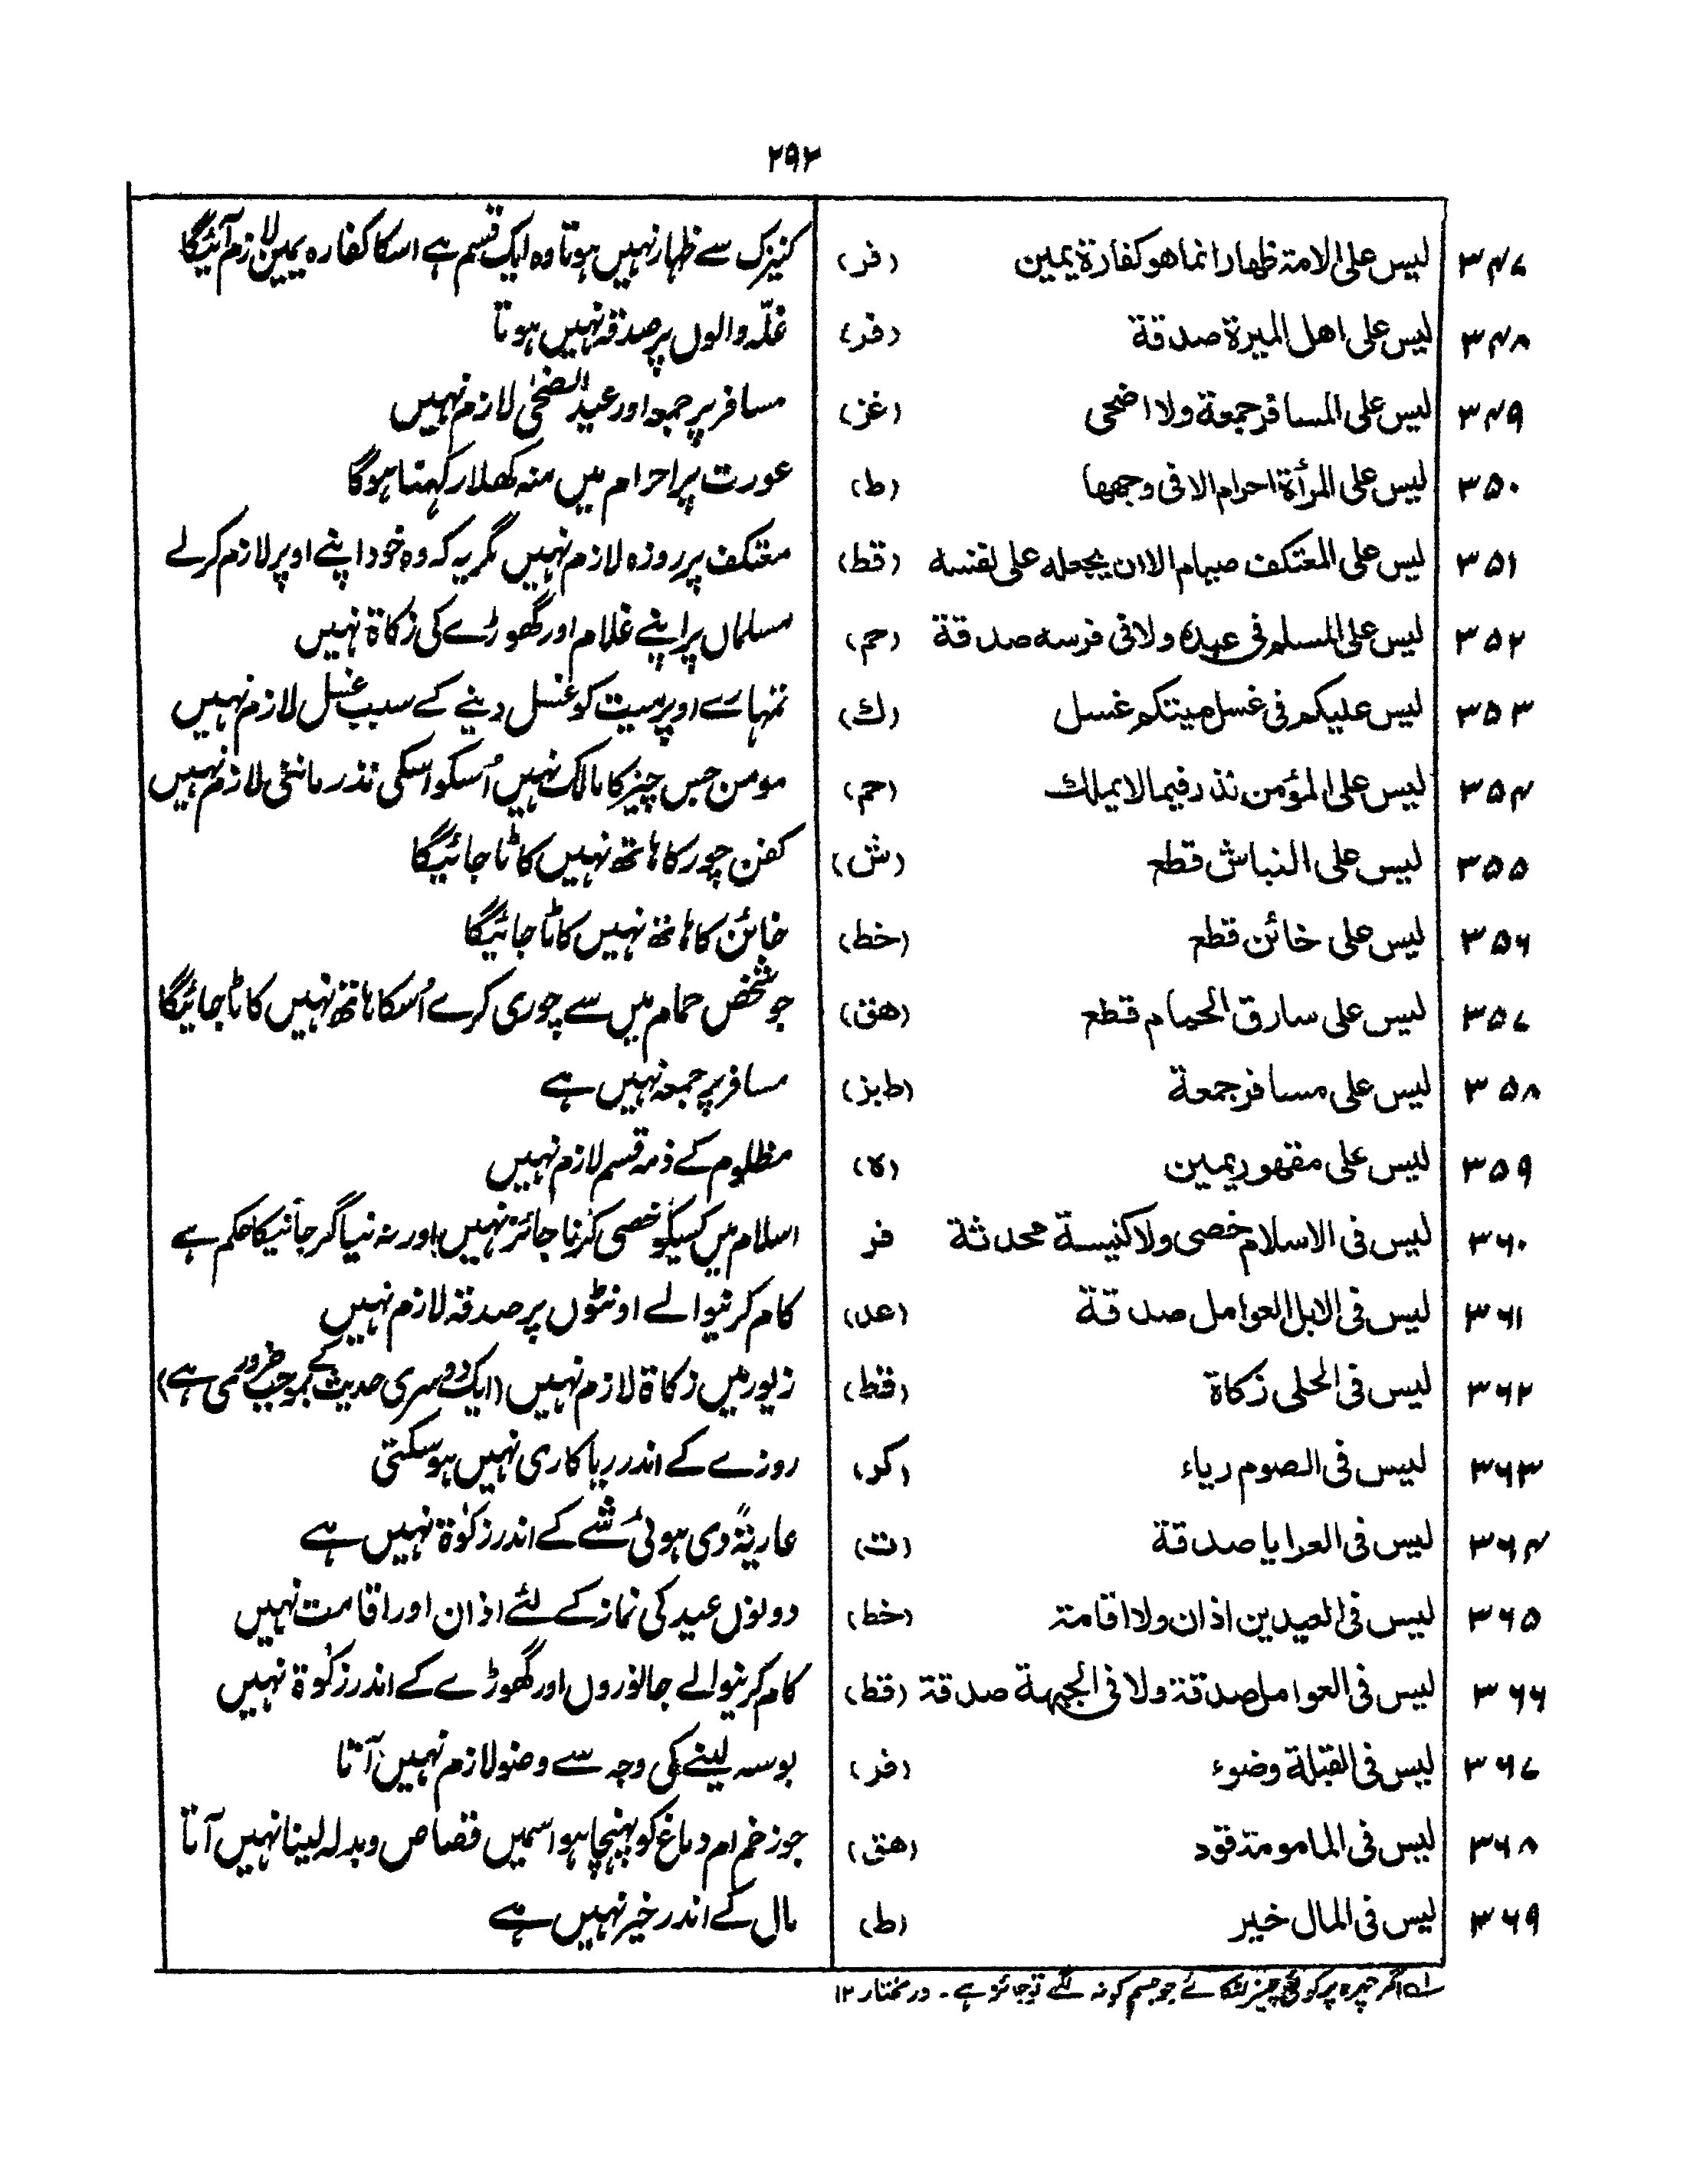 ۲۹۲
۳۴۷ لیس علی الامة ظهار انما هو کفارة یمین (فر) کنیزک سے ظہار نہیں ہوتا وہ ایک قسم ہے اسکا کفارہ یمین لازم آئیگا
۳۴۸ لیس علی اهل المیرة صدقة (فر) غلّہ والوں پر صدقہ نہیں ہوتا
۳۴۹ لیس علی المسافر جمعة ولا اضحی (غز) مسافر پر جمعہ اور عید الضحٰی لازم نہیں
۳۵۰ لیس علی المرأة احرام الا فی وجهها (ط) عورت پر احرام میں منہ کھلا رکہنا ہوگا
۳۵۱ لیس علی المعتکف صیام الا ان یجعله علی نفسه (قط) معتکف پر روزہ لازم نہیں مگر یہ کہ وہ خود اپنے اوپر لازم کرلے
۳۵۲ لیس علی المسلم فی عبده ولا فی فرسه صدقة (حم) مسلماں پر اپنے غلام اور گھوڑے کی زکاة نہیں
۳۵۳ لیس علیکم فی غسل میتکم غسل (ك) تمہارے اوپر میت کو غسل دینے کے سبب غسل لازم نہیں
۳۵۴ لیس علی المؤمن نذر فیما لا یملك (حم) مومن جس چیز کا مالک نہیں اُسکو اسکی نذر ماننی لازم نہیں
۳۵۵ لیس علی النباش قطع (ش) کفن چور کا ہاتھ نہیں کاٹا جائیگا
۳۵۶ لیس علی خائن قطع (خط) خائن کا ہاتھ نہیں کاٹا جائیگا
۳۵۷ لیس علی سارق الحمام قطع (هق) جو شخص حمام میں سے چوری کرے اُسکا ہاتھ نہیں کاٹا جائیگا
۳۵۸ لیس علی مسافر جمعة (طبز) مسافر پر جمعہ نہیں ہے
۳۵۹ لیس علی مقهور یمین (ہ) مظلوم کے ذمہ قسم لازم نہیں
۳۶۰ لیس فی الاسلام خصی ولا کنیسة محدثة فر اسلام میں کسیکو خصی کرنا جائز نہیں اور نہ نیا گرجا نیکا حکم ہے
۳۶۱ لیس فی الابل العوامل صدقة (عد) کام کرنیوالے اونٹوں پر صدقہ لازم نہیں
۳۶۲ لیس فی الحلی زکاة (قط) زیور میں زکاة لازم نہیں (ایک دوسری حدیث کے بموجب ضروری ہے)
۳۶۳ لیس فی الصوم ریاء (کر) روزے کے اندر ریا کاری نہیں ہوسکتی
۳۶۴ لیس فی العرایا صدقة (ت) عاریۃً دی ہوئی شے کے اندر زکوٰة نہیں ہے
۳۶۵ لیس فی العیدین اذان ولا اقامة (خط) دونوں عید کی نماز کے لئے اذان اور اقامت نہیں
۳۶۶ لیس فی العوامل صدقة ولا فی الجبهة صدقة (قط) کام کرنیوالے جانوروں اور گھوڑے کے اندر زکوٰة نہیں
۳۶۷ لیس فی القبلة وضوء (فر) بوسہ لینے کی وجہ سے وضو لازم نہیں آتا
۳۶۸ لیس فی المامومة قود (هق) جو زخم ام دماغ کو پہنچا ہو اسمیں قصاص و بدلہ لینا نہیں آتا
۳۶۹ لیس فی المال خیر (ط) مال کے اندر خیر نہیں ہے
لہ اگر چہرہ پر کوئی چیز لٹکائے جو جسم کو نہ لگے تو جائز ہے۔ در مختار ۱۲